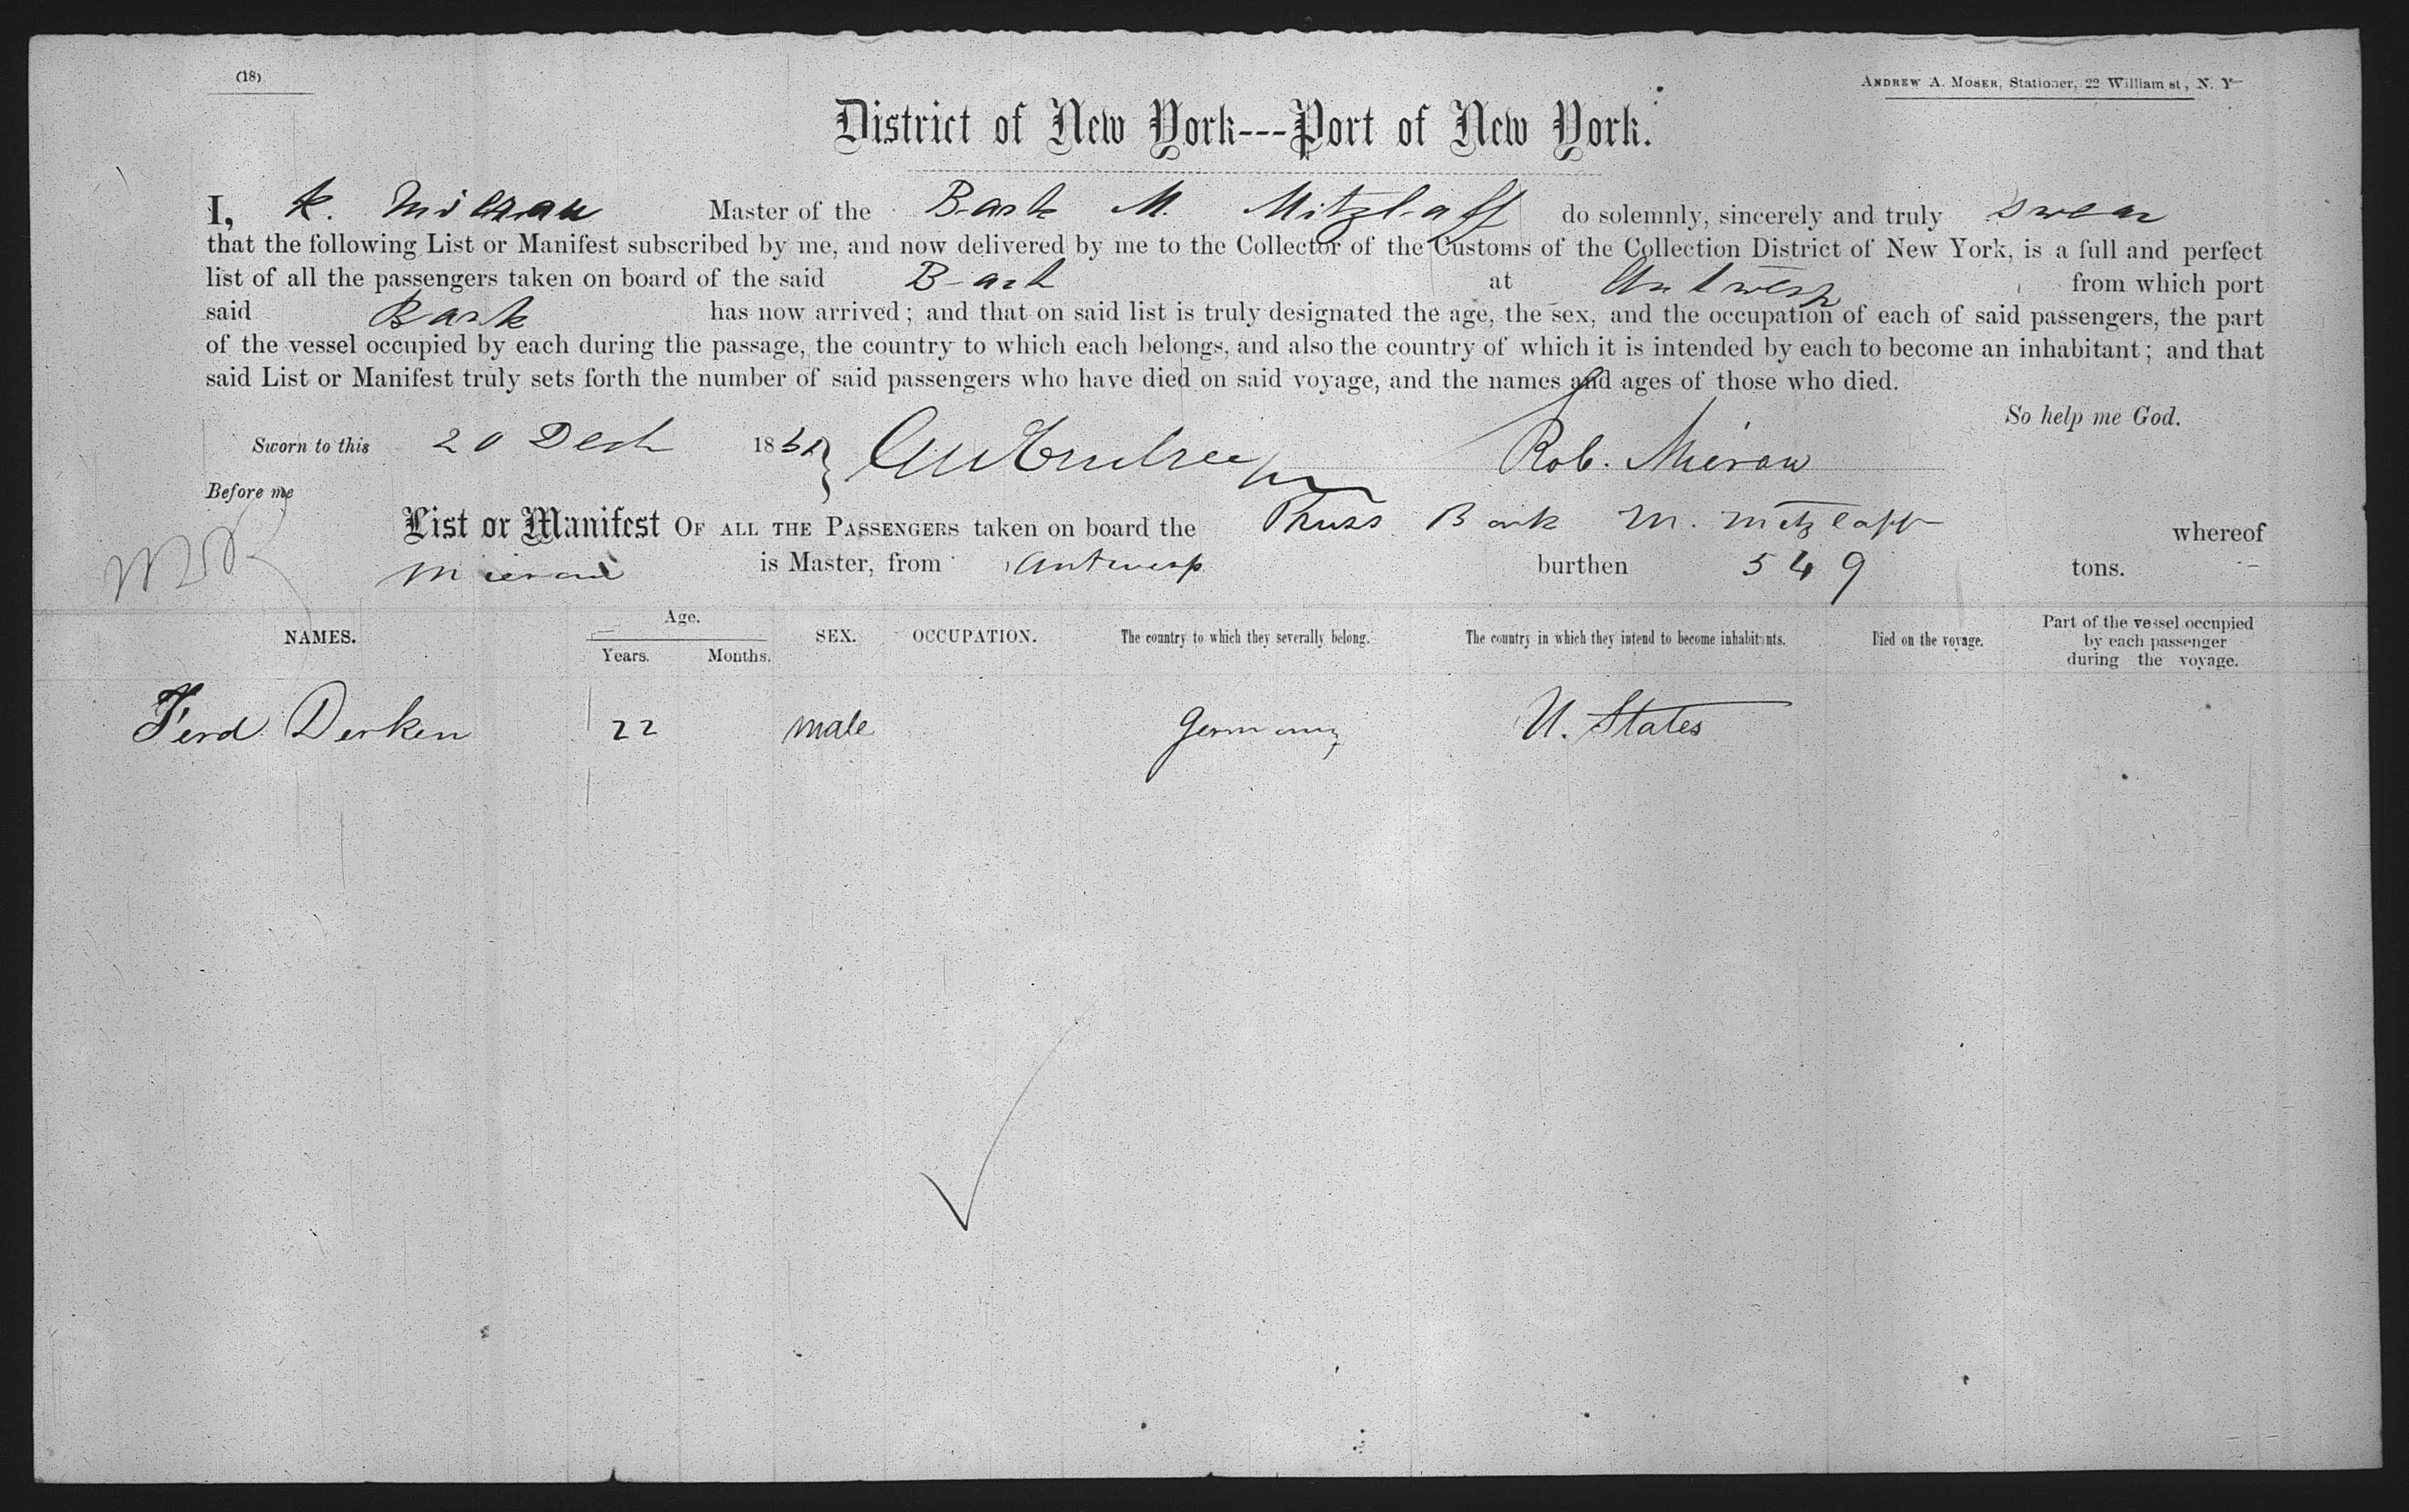 (18)
ANDREW A. MOSER, Stationer, 22 William st, N. Y
District of New York---Port of New York.
I, Master of the Bark M. Mitzlaff do solemnly, sincerely and truly swear
that the following List or Manifest subscribed by me, and now delivered by me to the Collector of the Customs of the Collection District of New York, is a full and perfect
list of all the passengers taken on board of the said Bark at Antwerp from which port
said Bark has now arrived; and that on said list is truly designated the age, the sex, and the occupation of each of said passengers, the part
of the vessel occupied by each during the passage, the country to which each belongs, and also the country of which it is intended by each to become an inhabitant; and that
said List or Manifest truly sets forth the number of said passengers who have died on said voyage, and the names and ages of those who died.
So help me God.
Sworn to this 20 Dech 18 Rob. Mieraw
Before me
List or Manifest OF ALL THE PASSENGERS taken on board the Pruss Bark M. Mitzlaff whereof
Mierau is Master, from Antwerp burthen 549 tons.
NAMES. Age. Years. Months. SEX. OCCUPATION. The country to which they severally belong. The country in which they intend to become inhabitants. Died on the voyage. Part of the vessel occupied by each passenger during the voyage.
Ferd Derken 22 male Germany U. States